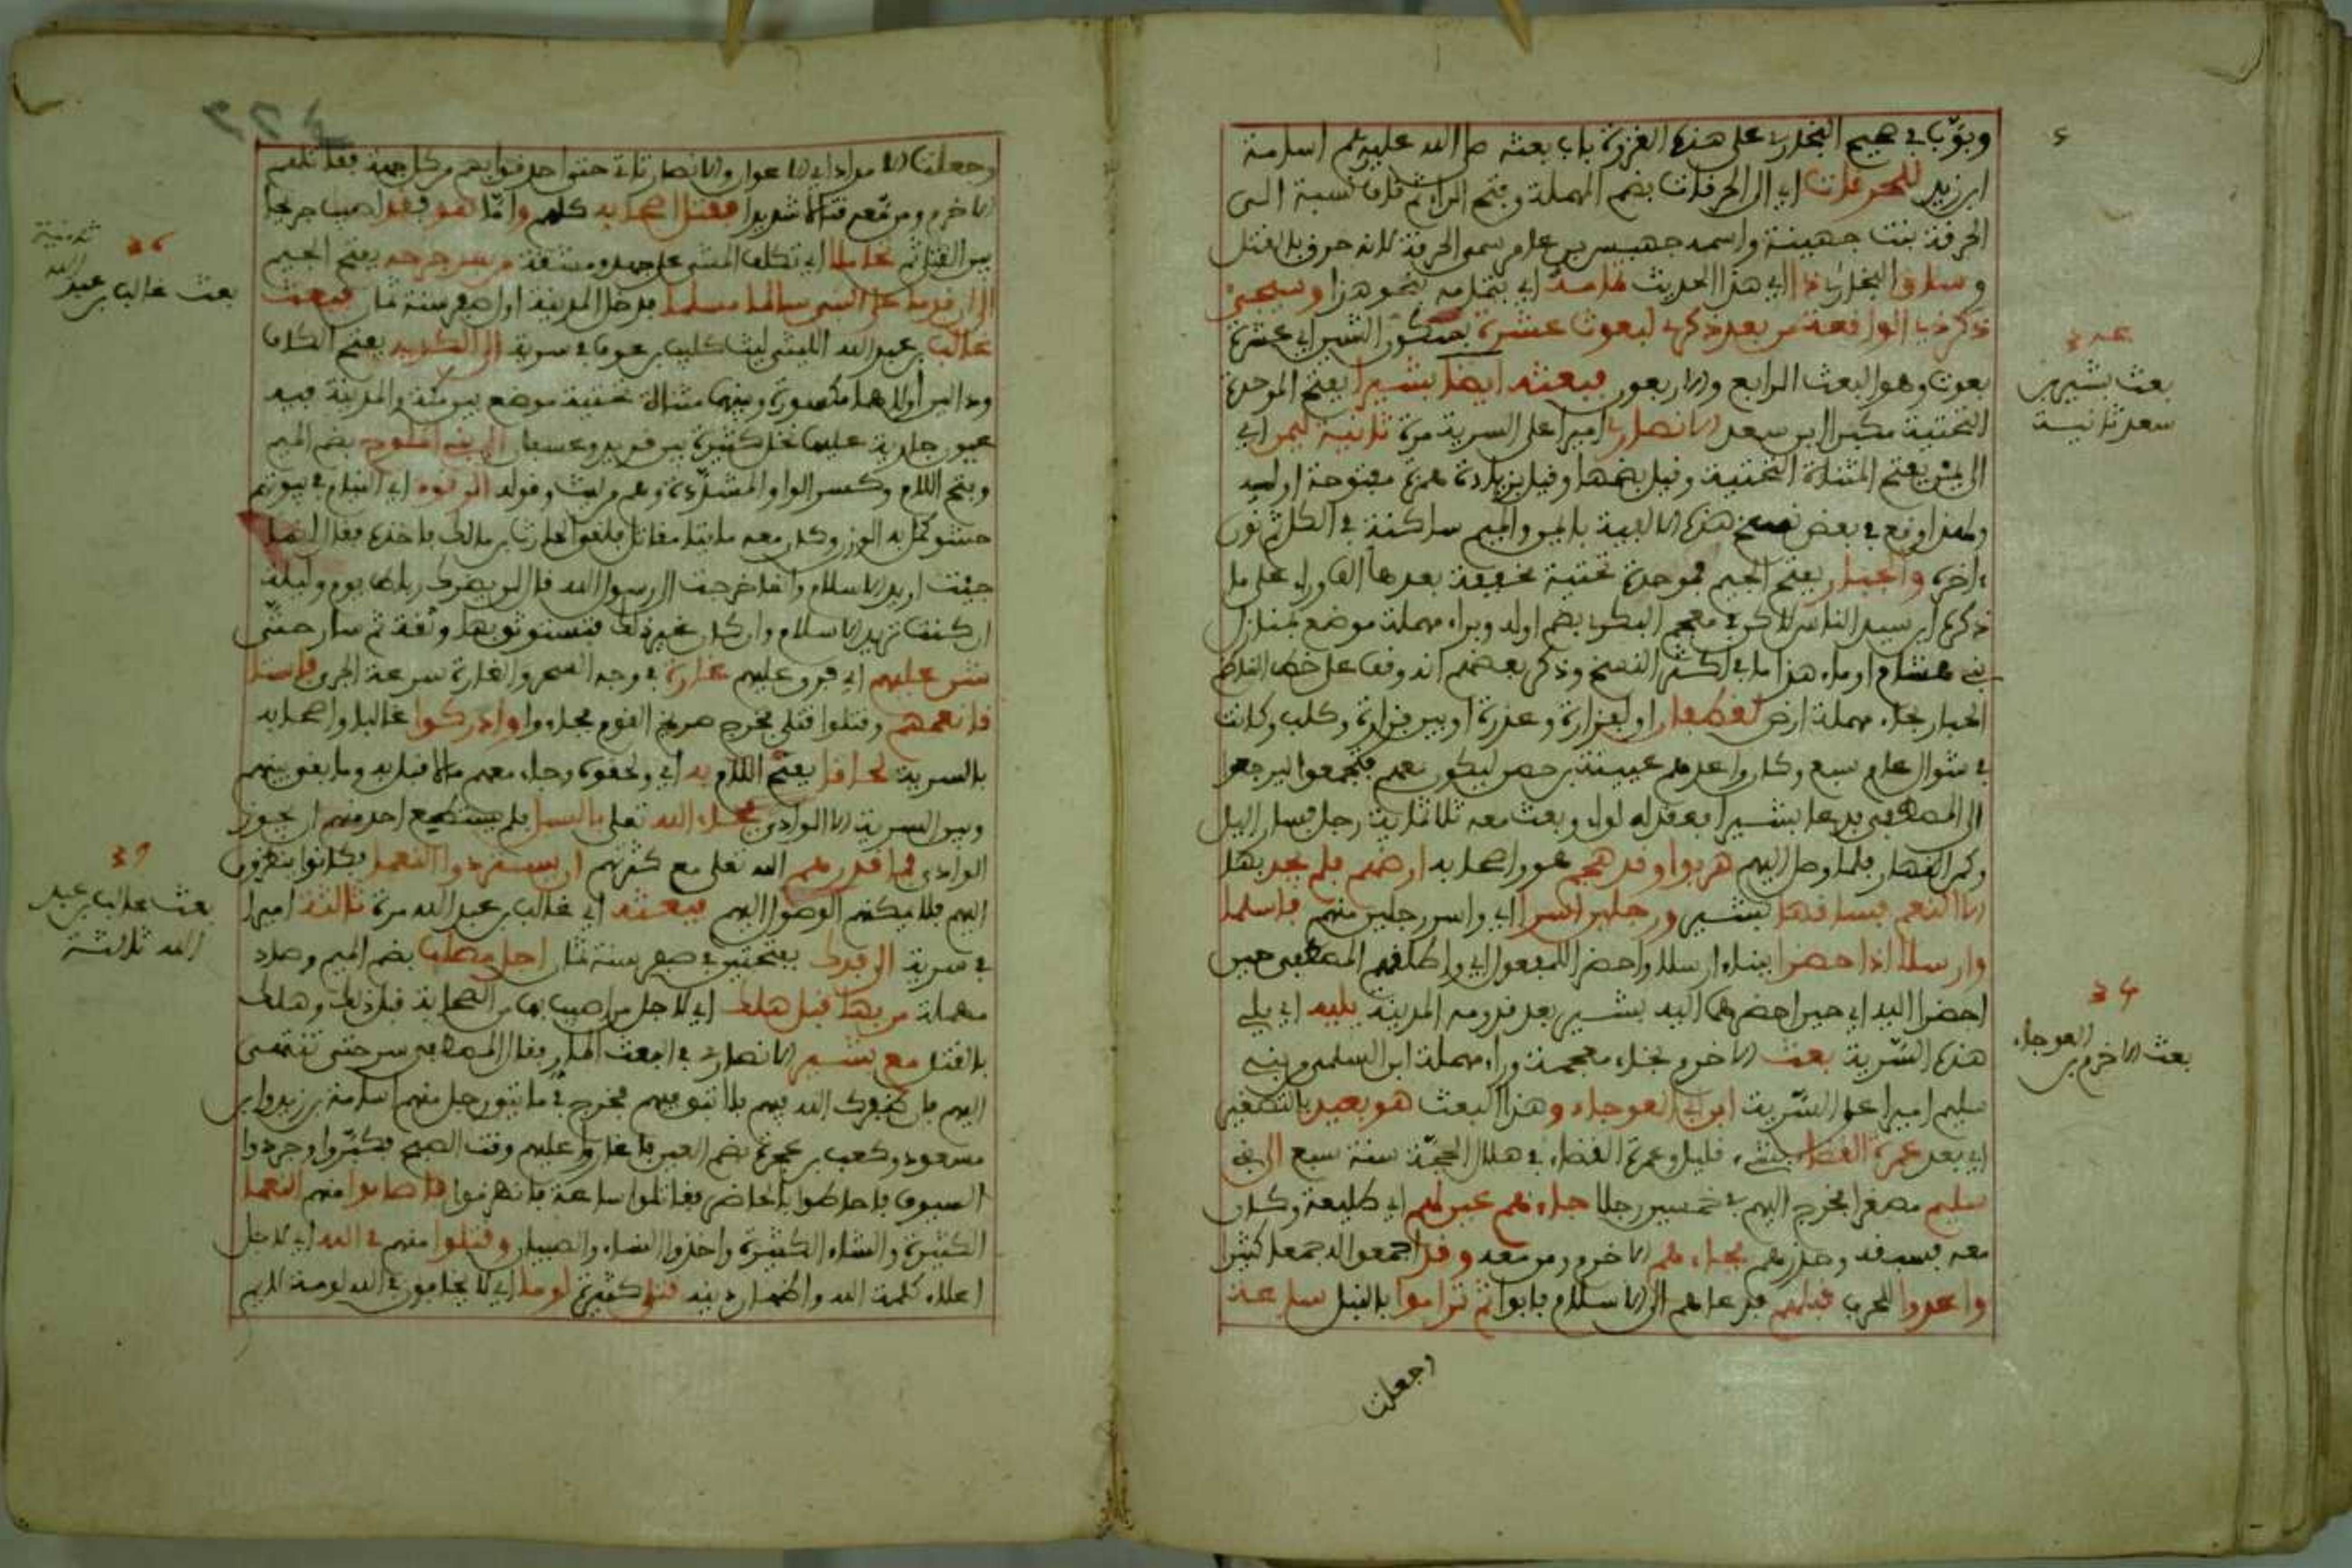 وبوّب في صحيح البخاري على هذه الغزوة باب بعثه صلى الله عليه وسلم اسامة
ابن زيد للحرقات اي الى الحرقات بضم المهملة وفتح الراء ثم قاف نسبة الى
الحرقة بنت جهينة واسمه جهيس بن عامر سمي الحرقة لانه حرق بالقتل
وساق البخاري ذا اي هذا الحديث هامدة اي بتمامه نحو هذا وسيجيء
ذكر ذي الواقعة من بعد ذكري لبعوث عشرة الشين اي عشرة
بعوث وهو البعث الرابع والاربعون فبعثه ايضا بشيرا بفتح الموحدة
التحتية مكبرا ابن سعد الانصاري اميرا على السرية مرة ثانية ليمن اي
الى يمن بفتح المثناة التحتية وقيل بضمها وقيل بزيادة همزة مفتوحة اوله
ولهذا وقع في بعض نسخ هذه الالفية بايمن والميم ساكنة في الكل ثم نون
ءاخره وجبار بفتح الجيم فموحدة تحتية مخففة بعدها الف وراء على ما
ذكره ابن سيد الناس لاكن في معجم البكري بضم اوله وبراء مهملة موضع بمنازل
بني هشام او ماء هذا ما في اكثر النسخ وذكر بعضهم انه وقف على خط الناظم
الحبار بحاء مهملة ارض لغطفان او لفزارة وعذرة او بين فزارة وكلب وكانت
في شوال عام سبع وكان واعدهم عيينة بن حصن ليكون معهم فتجمعوا ليرجعوا
الى المصطفى فدعا بشيرا فعقد له لواء وبعث معه ثلاثمائة رجل فسار الليل
وكمن النهار فلما وصل اليهم هربوا وقد هجم هو واصحابه ارضهم فلم يجد بها
الا النعم فساقها بشير ورجلين اسرا اي واسر رجلين منهم فاسلما
وارسلا اذا حضرا ببناء ارسلا واحضرا للمفعول اي واطلقهم المصطفى حين
احضرا اليه اي حين احضرهما اليه بشير بعد قدومه المدينة يليه اي يلي
هذه السرية بعث الاخرم بخاء معجمة وراء مهملة ابن السلمي من بني
سليم اميرا على السّرية ابن ابي العوجاء وهذا البعث هو بعيد بالتصغير
اي بعد عمرة القضاء بشيء قليل وعمرة القضاء في هلال الحجّة سنة سبع الى بني
سليم مصغرا فخرج اليهم في خمسين رجلا جاءهم عين لهم اي طليعة وكان
معه فسبقه وحذرهم فجاءهم الاخرم ومن معه وقد اجمعوا له جمعا كثيرا
واعدوا للحرب قبلهم فدعاهم الى الاسلام فابوا ثم تراموا بالنبل ساعة
وجعلت
بعث بشير بن
سعد ثانية
34
بعث الاخرم بن
العوجاء
وجعلت الامداد اي الاعوان والانصار تاتي حتى احدقوا بهم من كل جهة فقاتلهم
الاخرم ومن معه قتالا شديدا فقتل اصحابه كلهم وامّا هو فقد اصيب جريحا
بين القتلى ثم تحاملا اي تكلف المشي على جهد ومشقة من جرحه بفتح الجيم
الى ان قدم على النبي سالما مسلما فدخل المدينة اول صفر سنة ثمان فبعث
غالب بن عبد الله الليثي ليث كليب بن عوف في سرية الى الكديد بفتح الكاف
ودالين اولاهما مكسورة وبينهما مثناة تحتية موضع بين مكة والمدينة فيه
عيون جارية عليها نخل كثيرة بين قديد وعسفان الى بني الملوح بضم الميم
وفتح اللام وكسر الواو المشدّدة وهم من ليث وقوله الرقود اي النيام في بيوتهم
حشو كمل به الوزن وكان معه مايتا مقاتل فلقوا الحارث بن مالك فاخذوه فقال انما
جئت اريد الاسلام وانما خرجت الى رسول الله قالوا لن يضرك رباط يوم وليلة
ان كنت تريد الاسلام وان كان غير ذلك فنستوثق بها وثقة ثم سار حتّى
شن عليهم اي فرق عليهم غارة في وجه السحر والغارة سرعة الجري فاستاق
فانعمهم وقتلوا قتلى فخرج صريخ القوم فجاءوا وادركوا غالبا واصحابه
بالسرية لحاقا بفتح اللام به اي ولحقوه وجاء معهم مالا قبل به وما بقي بينهم
وبين السرية الا الوادي فجاء الله تعلى بالسيل فلم يستطيع احد منهم ان يجوز
الوادي فما قدرهم الله تعلى مع كثرتهم ان يستردوا النعما فكانوا ينظرون
اليهم فلا يمكنهم الوصول اليهم فبعثه اي غالب بن عبد الله مرة ثالثة اميرا
في سرية الى فدك بفتحتين في صفر سنة ثمان اجل مصاب بضم الميم وصاد
مهملة من بها قبل هلك اي لاجل من اصيب بها من الصحابة قبل ذلك وهلك
بالقتل مع بشير الانصاري في البعث المار وقال المصطفى سر حتى تنتهي
اليهم فان ظفرك الله بهم فلا تبق فيهم فخرج في مائتي رجل منهم اسامة بن زيد وابن
مسعود وكعب بن عجرة بضم العين فاغاروا عليهم وقت الصبح فكبّروا وجردوا
السيوف فاحاطوا بالحاضر فقاتلوا ساعة فانهزموا فاصابوا منهم النعما
الكثيرة والشاء الكثيرة واخذوا النساء والصبيان وقتلوا منهم في الله اي لاجل
اعلاء كلمة الله واظهار دينه قتلى كثيرة لوما اي لا يخافون في الله لومة لائم
36
بعث غالب بن عبد الله
ثانية
37
بعث غالب بن عبد
الله ثالثة